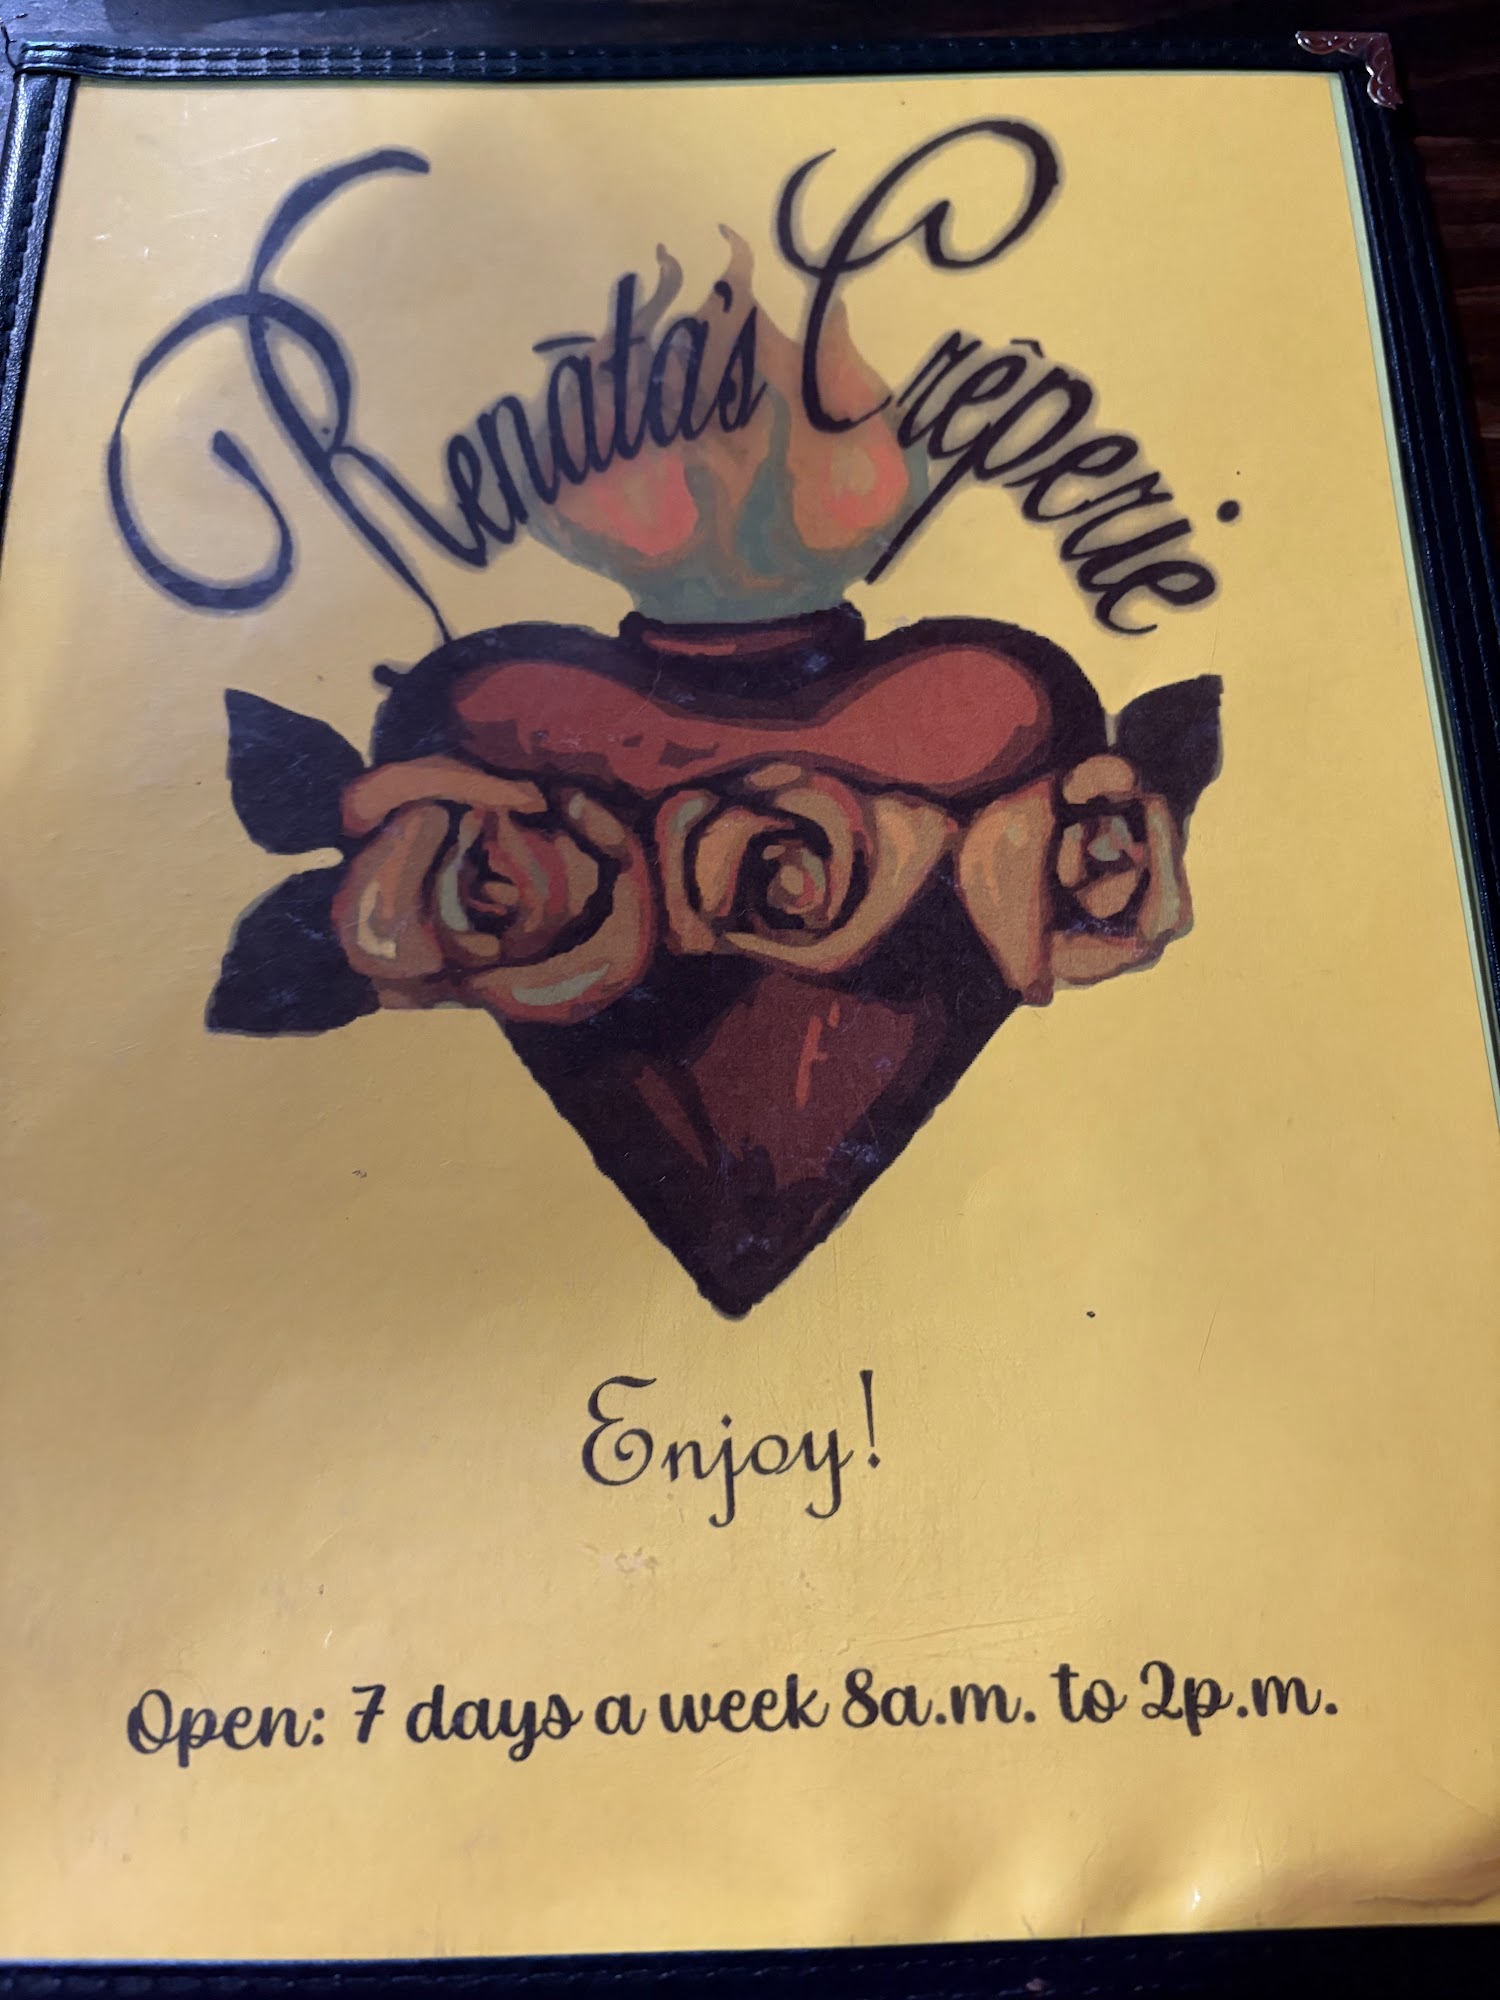 Renāta's Crêperie
Enjoy!
Open: 7 days a week 8a.m. to 2p.m.